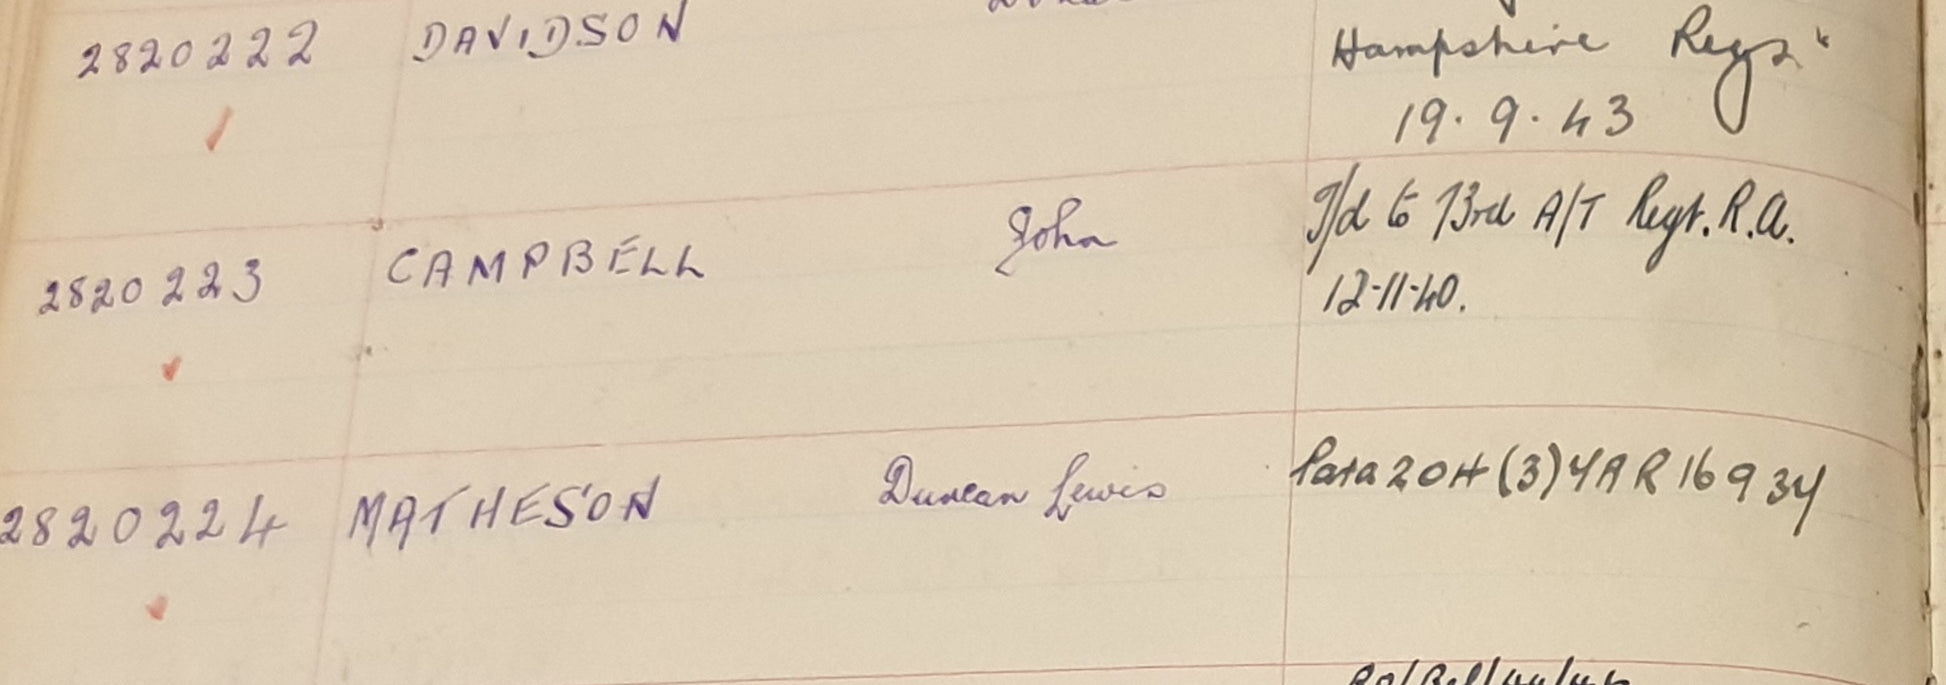 2820222 DAVIDSON Hampshire Regt.
19.9.43
2820223 CAMPBELL John T/d to 73rd A/T Regt. R.A.
12-11-40.
2820224 MATHESON Duncan Lewis Para 204 (3) YAR 16934